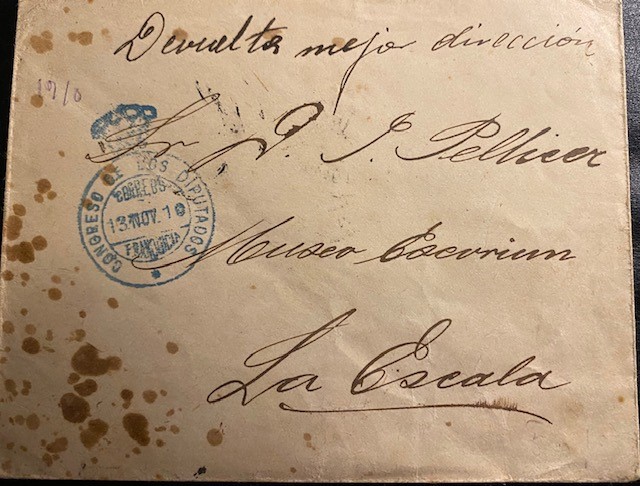 Devuelta mejor dirección
1910
Sr D. J. Pellicer
CONGRESO DE LOS DIPUTADOS
CORREOS
13 NOV. 10
FRANQUICIA
Museo Escorium
La Escala